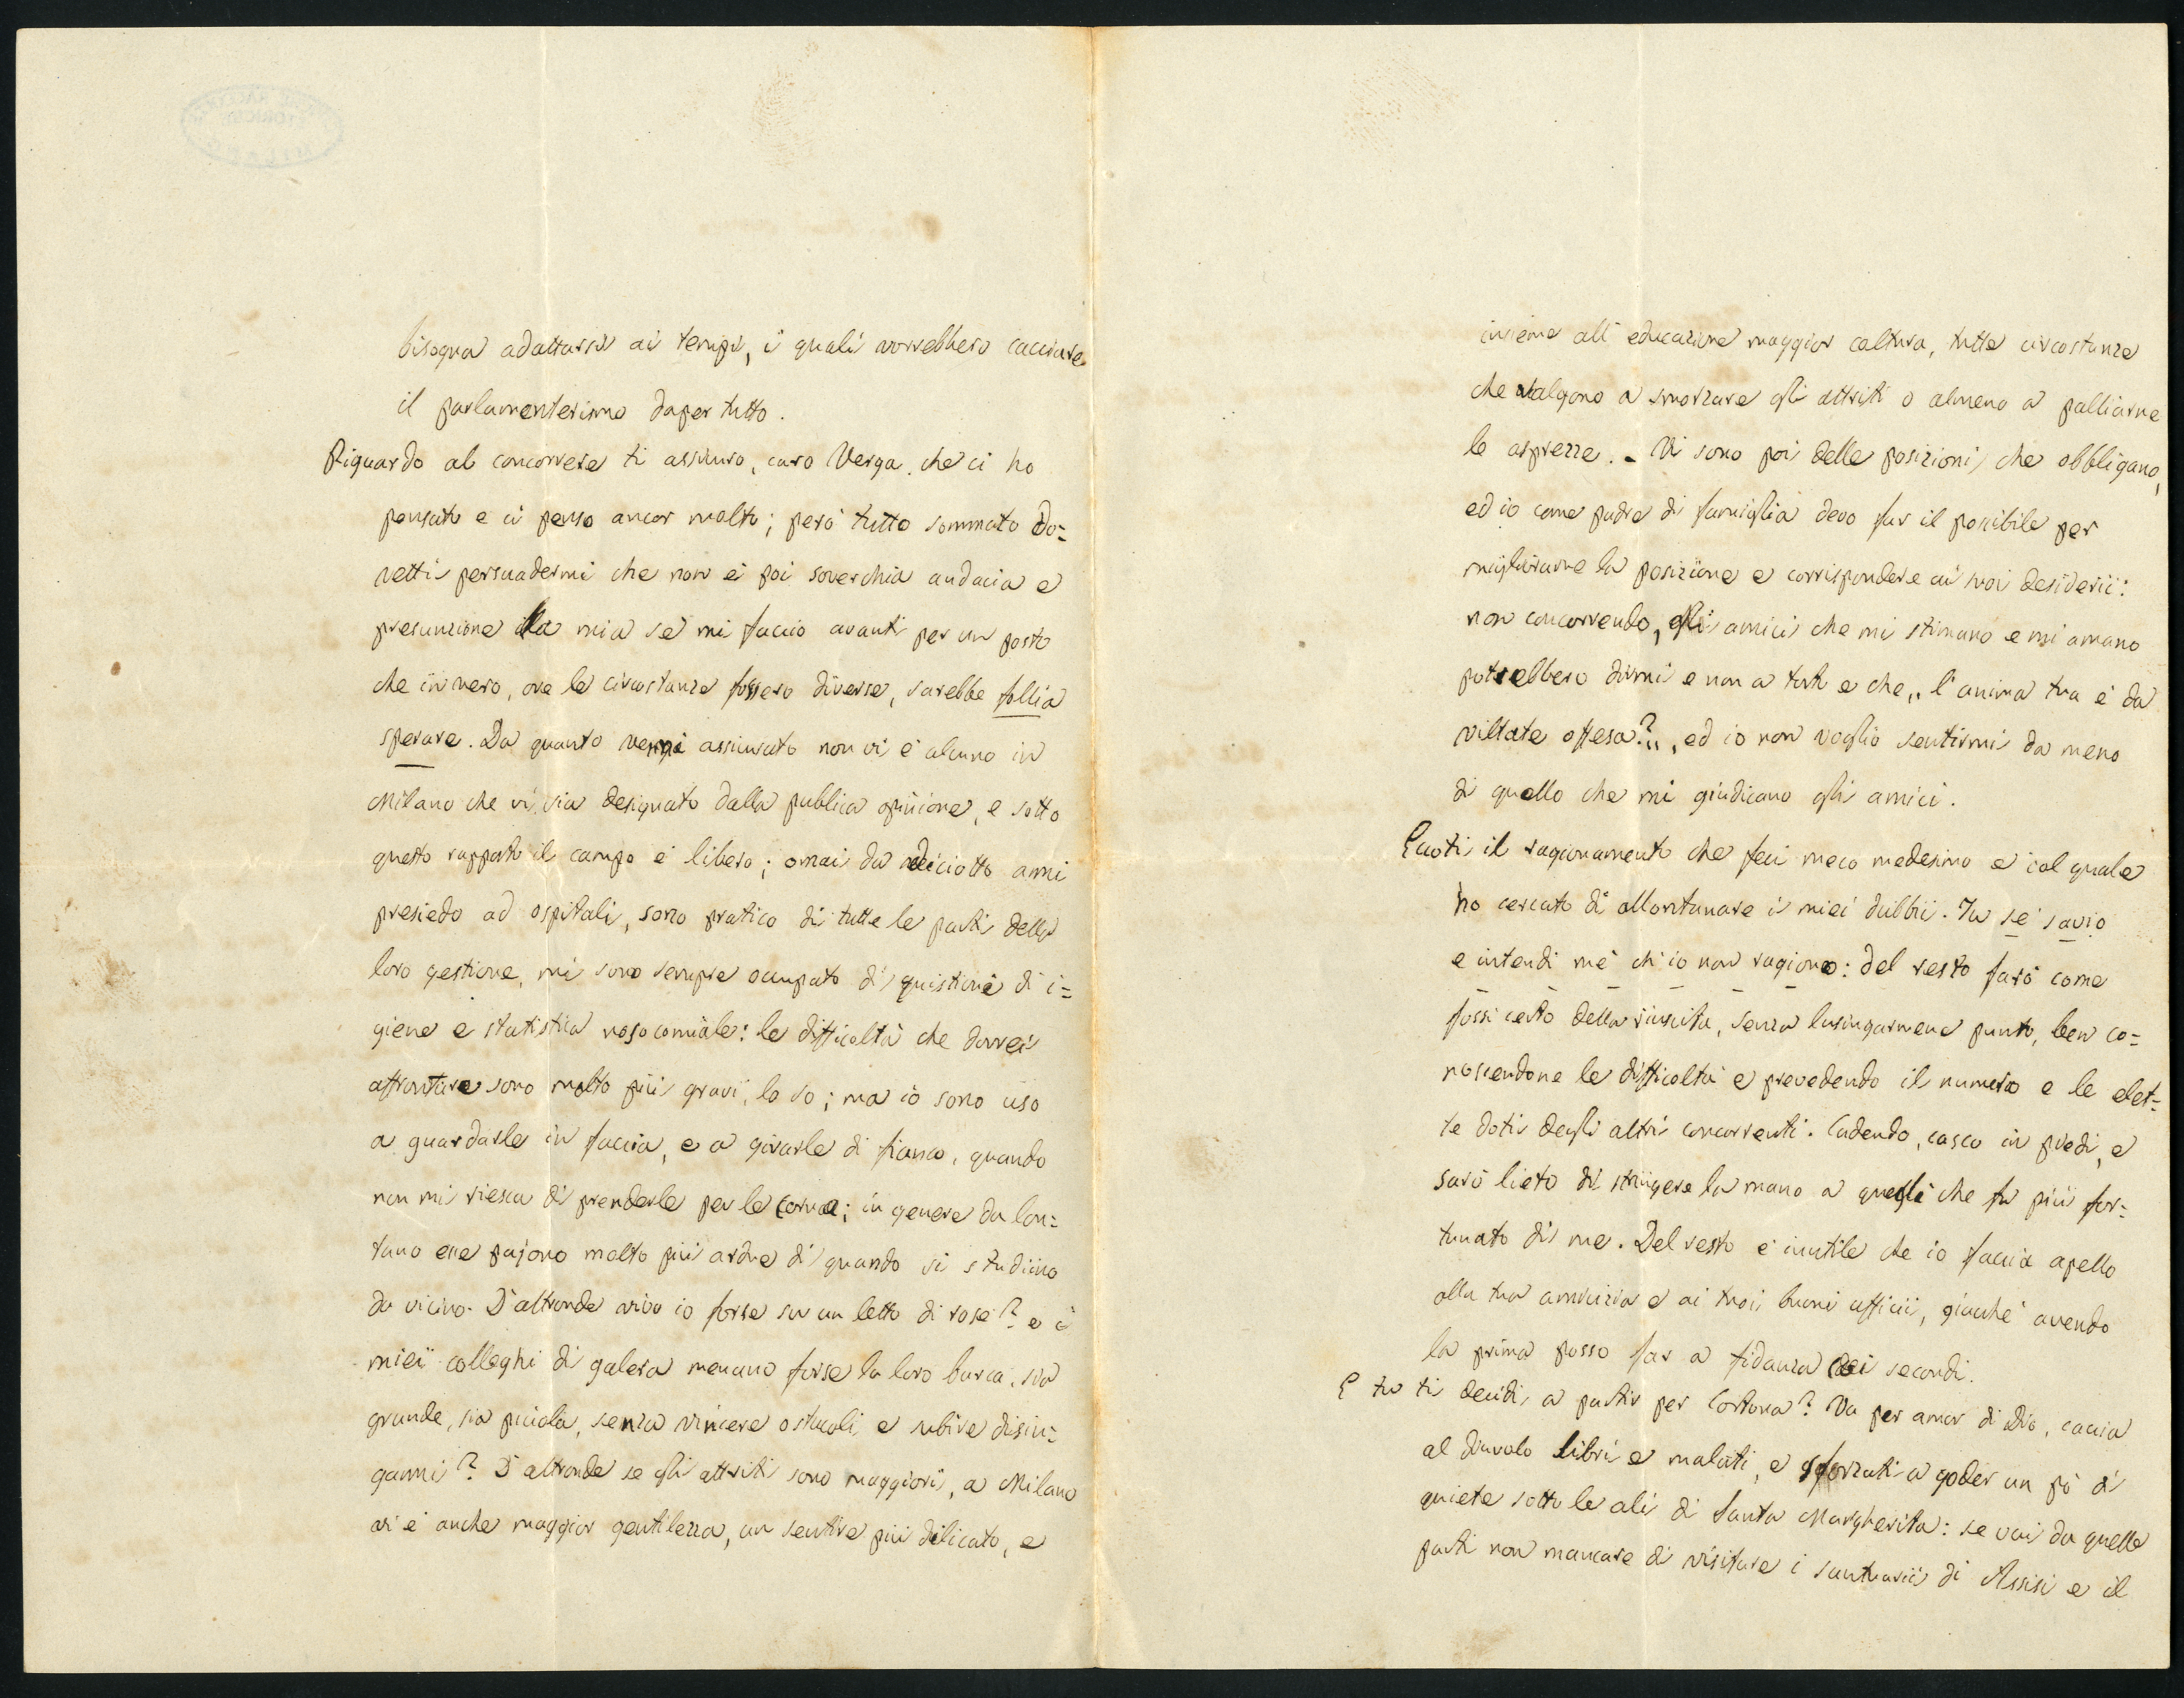 bisogna adattarsi ai tempi, i quali vorrebbero cacciare
il parlamenterismo dapertutto.
Riguardo al concorrere ti assicuro, caro Verga, che ci ho
pensato e ci penso ancor molto; però tutto sommato do=
vetti persuadermi che non è poi soverchia audacia e
presunzione la mia se mi faccio avanti per un posto
che in vero, ove le circostanze fossero diverse, sarebbe follia
sperare. Da quanto venni assicurato non vi è alcuno in
Milano che vi sia designato dalla publica opinione, e sotto
questo rapporto il campo è libero; omai da diciotto anni
presiedo ad ospitali, sono pratico di tutte le parti della
loro gestione, mi sono sempre occupato di quistioni di i=
giene e statistica nosocomiale: le difficoltà che dovrei
affrontare sono molto più gravi, lo so; ma io sono uso
a guardarle in faccia, e a girarle di fianco, quando
non mi riesca di prenderle per le corna; in genere da lon=
tano esse pajono molto più ardue di quando si studiino
da vicino. D'altronde vivo io forse su un letto di rose? e i
miei colleghi di galera menano forse la loro barca, sia
grande, sia piccola, senza vincere ostacoli, e subire disin=
ganni? D'altronde se gli attriti sono maggiori, a Milano
vi è anche maggior gentilezza, un sentire più dilicato, e
insieme all'educazione maggior coltura, tutte circostanze
che valgono a smorzare gli attriti o almeno a palliarne
le asprezze. - Vi sono poi delle posizioni che obbligano,
ed io come padre di famiglia devo far il possibile per
migliorarne la posizione e corrispondere ai suoi desiderii:
non concorrendo, gli amici che mi stimano e mi amano
potrebbero dirmi e non a torto e che „ l'anima tua è da
viltate offesa?„, ed io non voglio sentirmi da meno
di quello che mi giudicano gli amici.
Eccoti il ragionamento che feci meco medesimo e col quale
ho cercato di allontanare i miei dubbii. Tu se' savio
e intendi me' ch'io non ragiono: del resto farò come
fossi certo della riuscita, senza lusingarmene punto, ben co=
noscendone le difficoltà e prevedendo il numero e le elet=
te doti degli altri concorrenti. Cadendo, casco in piedi, e
sarò lieto di stringere la mano a quegli che fu più for=
tunato di me. Del resto è inutile che io faccia apello
alla tua amicizia e ai tuoi buoni ufficii, giacchè avendo
la prima posso far a fidanza dei secondi.
E tu ti decidi a partir per Cortona? Va per amor di Dio, caccia
al diavolo libri e malati, e sforzati a goder un pò di
quiete sotto le ali di Santa Margherita: se vai da quelle
parti non mancare di visitare i santuarii di Assisi e il